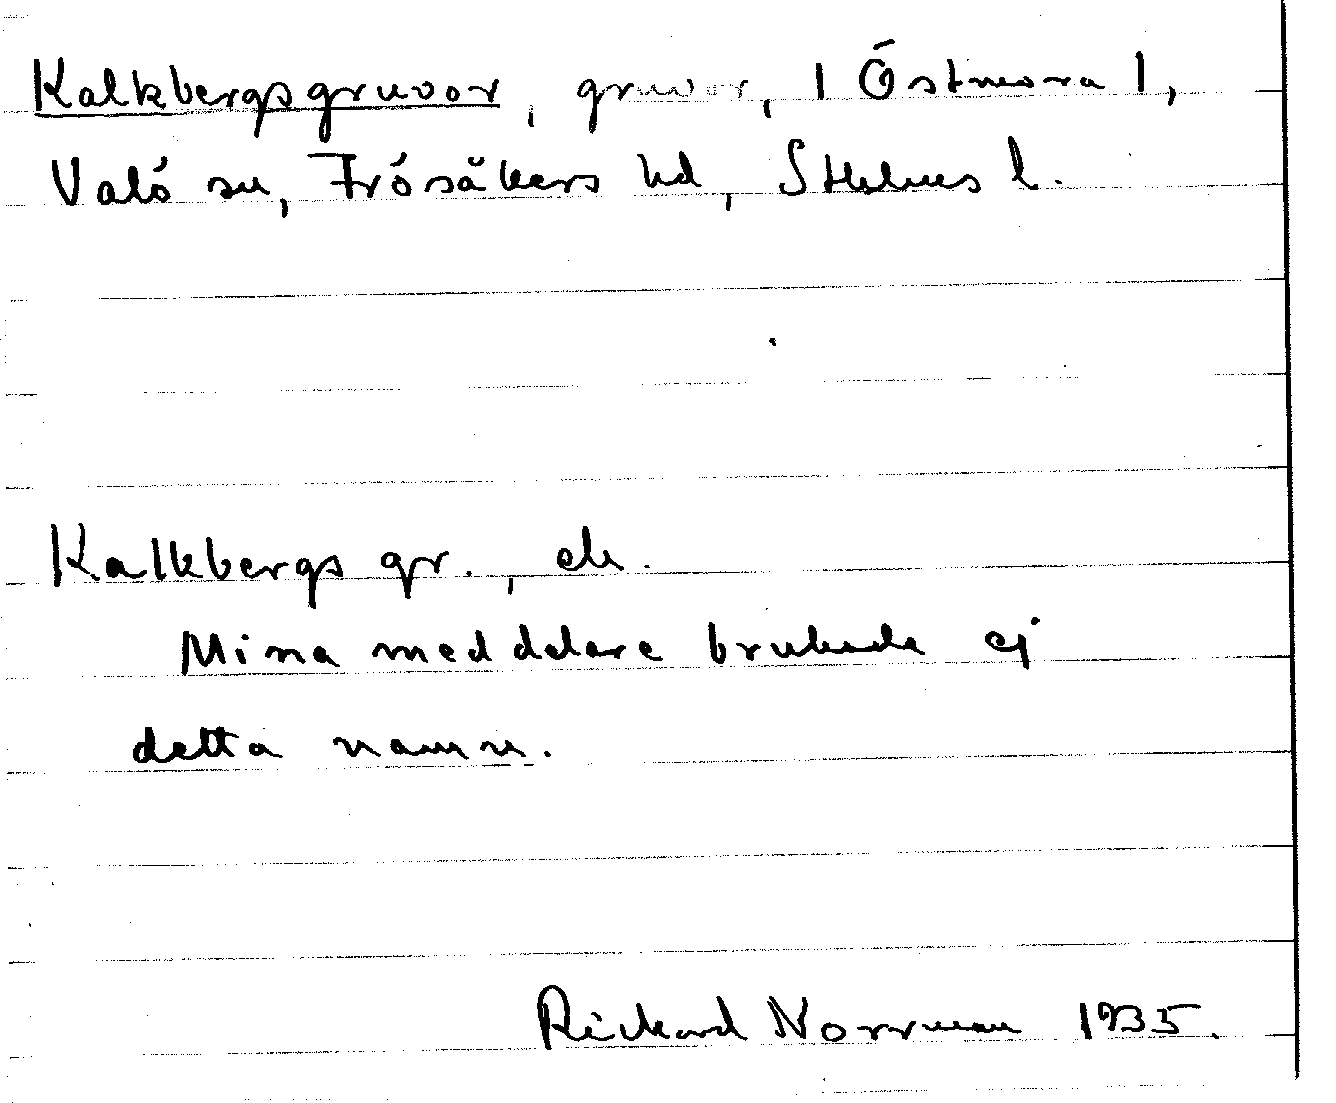 Kalkbergsgruvor, gruvor, 1 Östmora 1,
Valö sn, Frösåkers hd, Sthlms l.
Kalkbergs gr., ek.
Mina meddelare brukade ej
detta namn.
Rickard Norrman 1935.